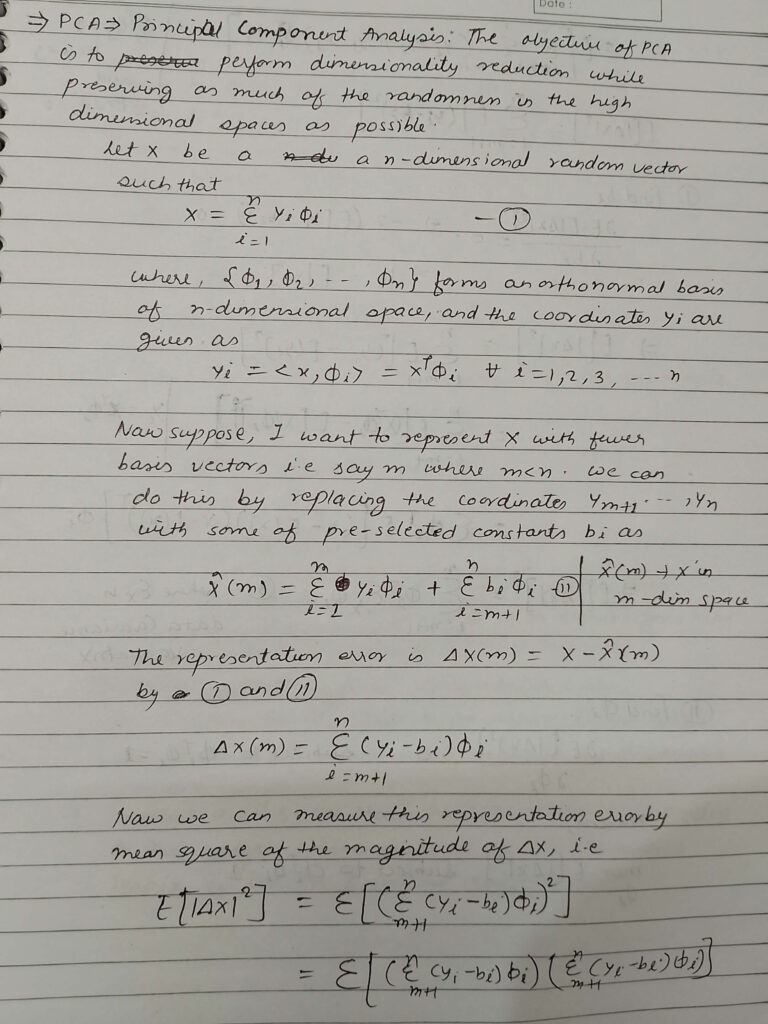 Date :
⇒ PCA ⇒ Principal Component Analysis: The objective of PCA
is to preserve perform dimensionality reduction while
preserving as much of the randomness in the high
dimensional spaces as possible.
Let x be a n-dim a n-dimensional random vector
such that
x = Σ_{i=1}^{n} yi ϕi — (I)
where, {ϕ1, ϕ2, --, ϕn} forms an orthonormal basis
of n-dimensional space, and the coordinates yi are
given as
yi = <x, ϕi> = x^T ϕi ∀ i=1,2,3, --- n
Now suppose, I want to represent x with fewer
basis vectors i.e say m where m<n. we can
do this by replacing the coordinates ym+1 --- , yn
with some of pre-selected constants bi as
x̂(m) = Σ_{i=1}^{m} yi ϕi + Σ_{i=m+1}^{n} bi ϕi — (II) | x̂(m) → x in
m-dim space
The representation error is Δx(m) = x - x̂(m)
by (I) and (II)
Δx(m) = Σ_{i=m+1}^{n} (yi - bi) ϕi
Now we can measure this representation error by
mean square of the magnitude of Δx, i.e
E[|Δx|²] = E[(Σ_{m+1}^{n} (yi - bi) ϕi)²]
= E[(Σ_{m+1}^{n} (yi - bi) ϕi) (Σ_{m+1}^{n} (yi - bi) ϕi)]